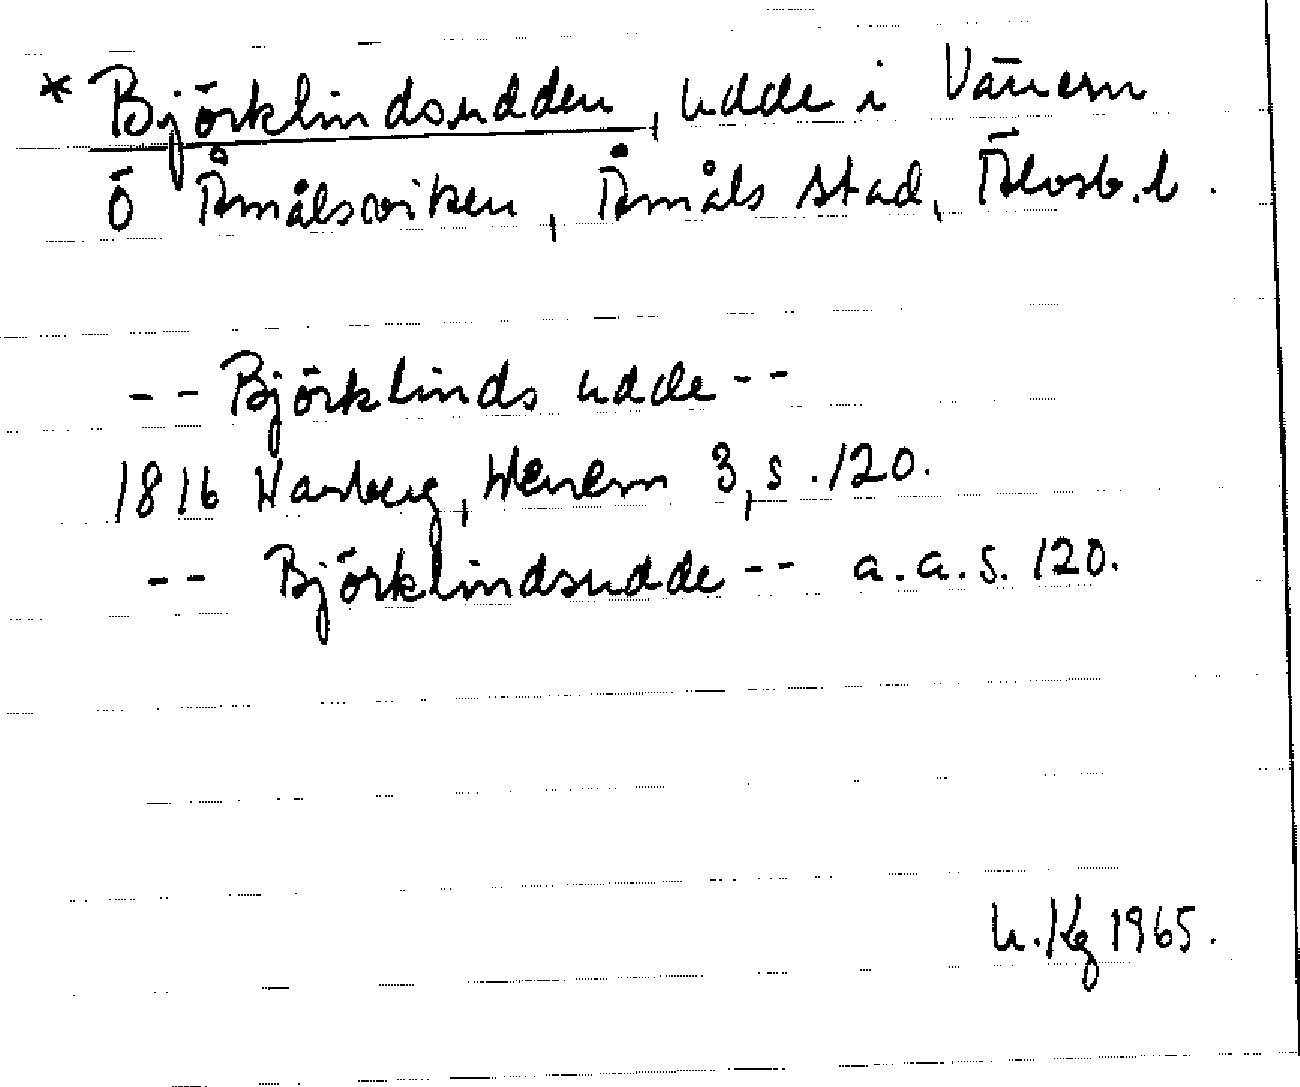 * Björklindsudden, udde i Vänern
Ö Åmålsviken, Åmåls stad, Älvsb. l.
-- Björklinds udde --
1816 Warberg, Wenern 3, s. 120.
-- Björklindsudde -- a.a.s. 120.
U. Kg 1965.